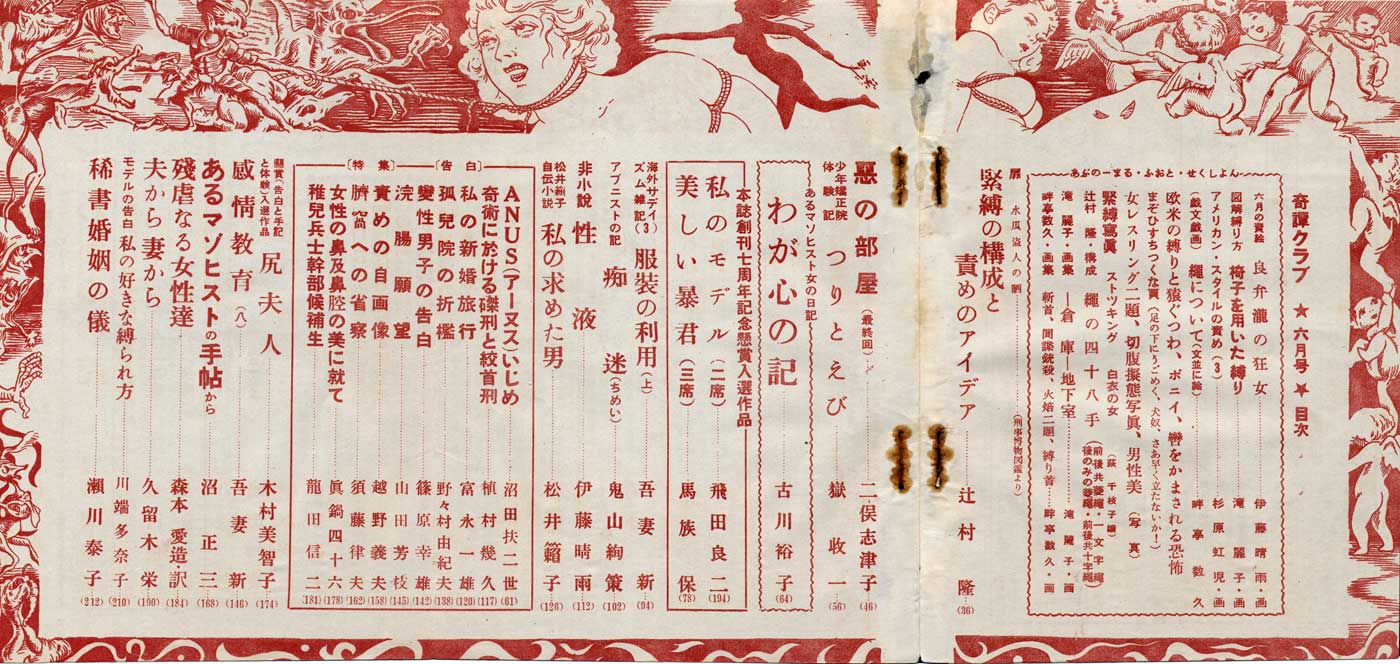 奇譚クラブ ★ 六月号 ★ 目次
あぶのーまる・ふおと・せくしよん
六月の責絵 良弁瀧の狂女 伊藤晴雨・画
図解縛り方 椅子を用いた縛り 滝麗子・画
アメリカン・スタイルの責め(3) 杉原虹児・画
(戯文戯画) 繩について(文並に絵) 畔亭数久
欧米の縛りと猿ぐつわ、ポニイ、轡をかまされる恐怖
まぞひすちつくな頁(足の下にうごめく、犬奴、さあ早く立たないか!)
女レスリング二題、切腹擬態写眞、男性美(写真)
緊縛寫眞 ストツキング 白衣の女(萩千枝子嬢)
辻村隆・構成 繩の四十八手(前後共菱繩・一文字繩 後のみの菱繩・前後共十字繩)
滝麗子・画集 ―倉庫―地下室 滝麗子・画
畔亭数久・画集 斬首、間諜銃殺、火焙二題、縛り首 畔亭数久・画
扉 水瓜盗人の晒(刑事博物図鑑より)
緊縛の構成と責めのアイデア 辻村隆(36)
悪の部屋(最終回) 二俣志津子(46)
少年矯正院体験記 つりとえび 嶽収一(56)
あるマゾヒスト女の日記
わが心の記 古川裕子(64)
本誌創刊七周年記念懸賞入選作品
私のモデル(二席) 飛田良二(194)
美しい暴君(三席) 馬族保(78)
海外サデイズム雑記(3) 服装の利用(上) 吾妻新(94)
アブニストの記 痴迷(ちめい) 鬼山絢策(102)
非小説 性液 伊藤晴雨(112)
松井籟子自伝小説 私の求めた男 松井籟子(126)
〔特集〕〔告白〕
ANUS(アーヌス)いじめ 沼田扶二世(61)
奇術に於ける磔刑と絞首刑 植村幾久(117)
私の新婚旅行 富永一雄(120)
孤兒院の折檻 野々村由紀夫(138)
變性男子の告白 篠原幸雄(142)
浣腸願望 山田芳枝(145)
責めの自画像 越野義夫(158)
臍窩への省察 須藤律夫(162)
女性の鼻及鼻腔の美に就て 眞鍋四十六(178)
稚兒兵士幹部候補生 龍田信二(181)
懸賞(告白と手記と体験)入選作品 尻夫人 木村美智子(174)
感情教育(八) 吾妻新(146)
あるマゾヒストの手帖から 沼正三(168)
殘虐なる女性達 森本愛造訳(184)
夫から妻から 久留木栄(190)
モデルの告白 私の好きな縛られ方 川端多奈子(210)
稀書婚姻の儀 瀬川泰子(212)